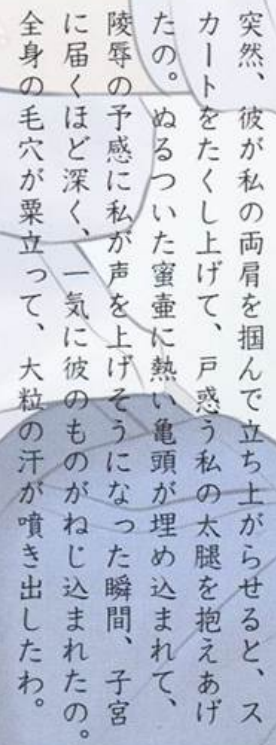 突然、彼が私の両肩を掴んで立ち上がらせると、ス
カートをたくし上げて、戸惑う私の太腿を抱えあげ
たの。ぬるついた蜜壷に熱い亀頭が埋め込まれて、
陵辱の予感に私が声を上げそうになった瞬間、子宮
に届くほど深く、一気に彼のものがねじ込まれたの。
全身の毛穴が粟立って、大粒の汗が噴き出したわ。